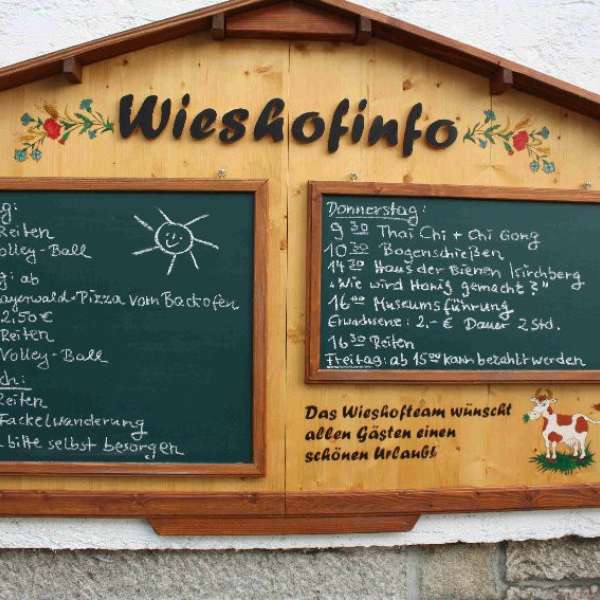 Wieshofinfo
g:
Reiten
olley-Ball
g: ab
ayerwald-Pizza vom Backofen
2,50 €
Reiten
Volley-Ball
ch:
Reiten
Fackelwanderung
bitte selbst besorgen
Donnerstag:
9 30 Thai Chi + Chi Gong
10 30 Bogenschießen
14 30 Haus der Bienen Kirchberg
"Wie wird Honig gemacht?"
16 00 Museumsführung
Erwachsene: 2.- € Dauer 2 Std.
16 30 Reiten
Freitag: ab 15 00 kann bezahlt werden
Das Wieshofteam wünscht
allen Gästen einen
schönen Urlaub!